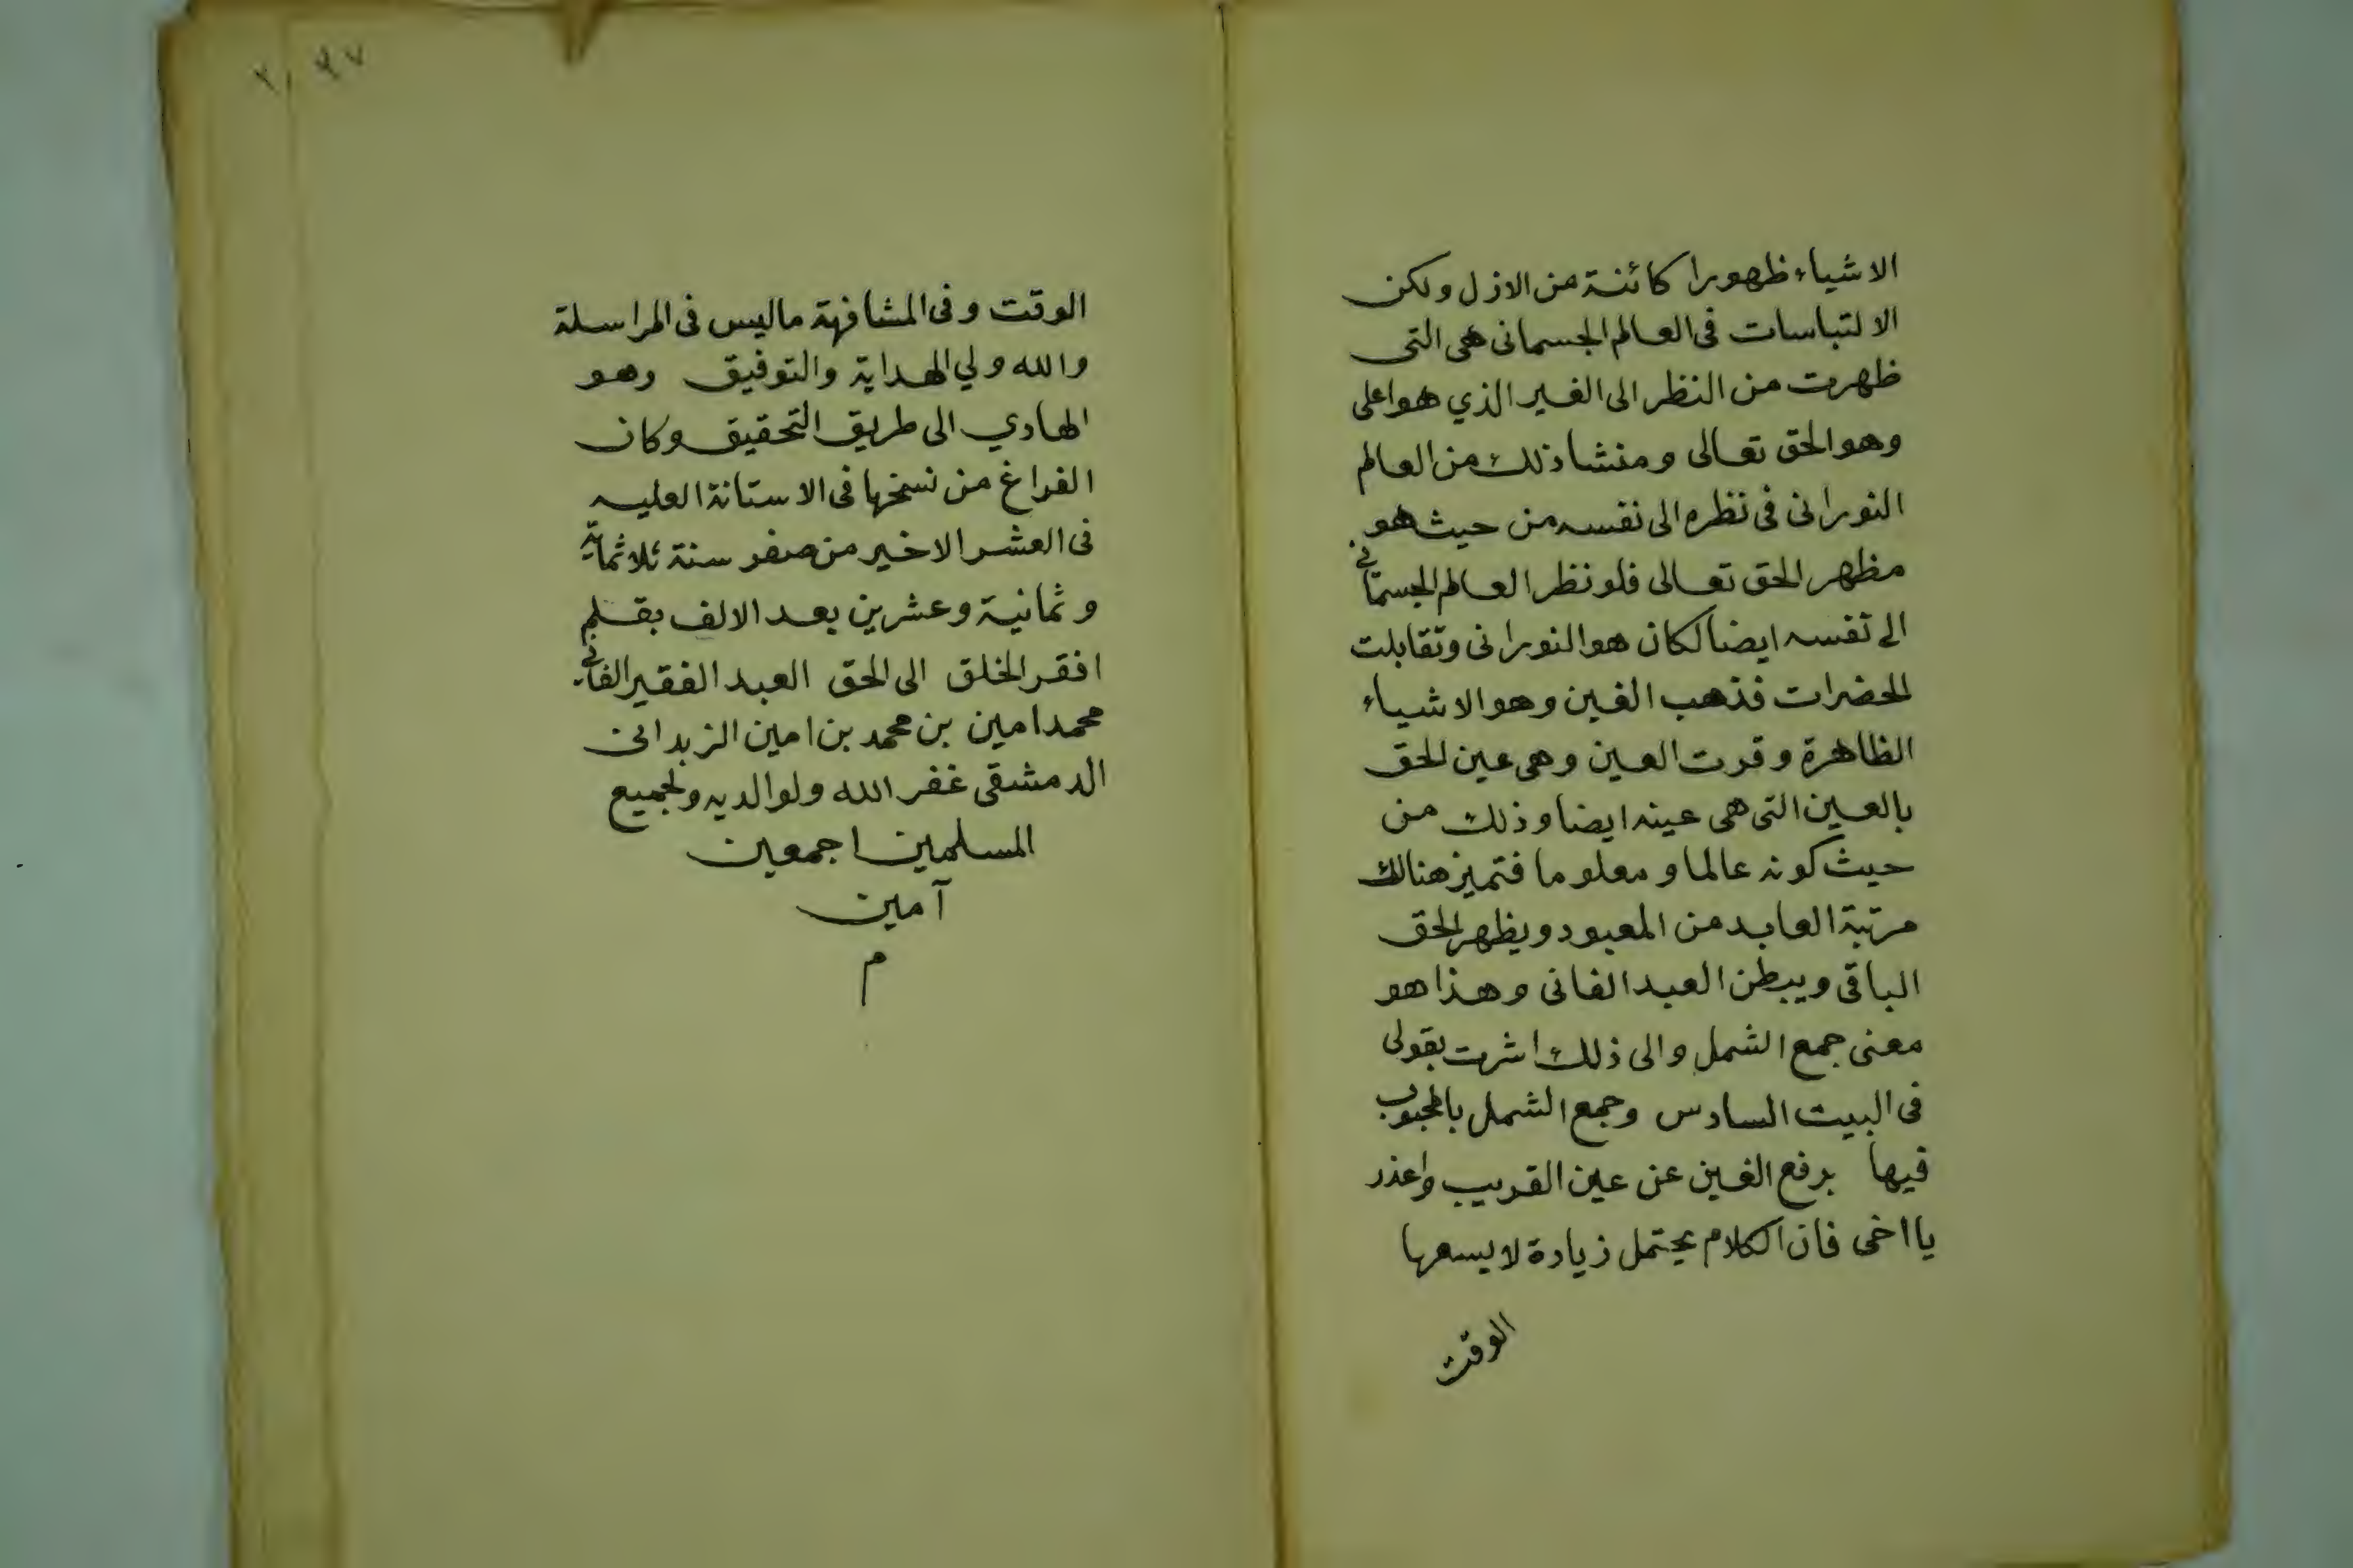 الاشياء ظهورا كائنة من الازل ولكن
الالتباسات فى العالم الجسمانى هى التى
ظهرت من النظر الى الغير الذي هو اعلى
وهو الحق تعالى ومنشا ذلك من العالم
النورانى فى نظره الى نفسه من حيث هو
مظهر الحق تعالى فلو نظر العالم الجسمانى
الى نفسه ايضا لكان هو النورانى وتقابلت
الحضرات فذهب الغين وهو الاشياء
الظاهرة وقرت العين وهى عين الحق
بالعين التى هى عينه ايضا وذلك من
حيث كونه عالما ومعلوما فتميز هنالك
مرتبة العابد من المعبود ويظهر الحق
الباقى ويبطن العبد الفانى وهذا هو
معنى جمع الشمل والى ذلك اشرت بقولى
فى البيت السادس وجمع الشمل بالمحبوب
فيها برفع الغين عن عين القريب واعذر
يا اخى فان الكلام يحتمل زيادة لا يسعها
الوقت
الوقت وفى المشافهة ماليس فى المراسلة
والله ولي الهداية والتوفيق وهو
الهادي الى طريق التحقيق وكان
الفراغ من نسخها فى الاستانة العليه
فى العشر الاخير من صفر سنة ثلاثماية
وثمانية وعشرين بعد الالف بقلم
افقر الخلق الى الحق العبد الفقير الفانى
محمد امين بن محمد بن امين الزبدانى
الدمشقى غفر الله ولوالديه ولجميع
المسلمين اجمعين
آمين
م